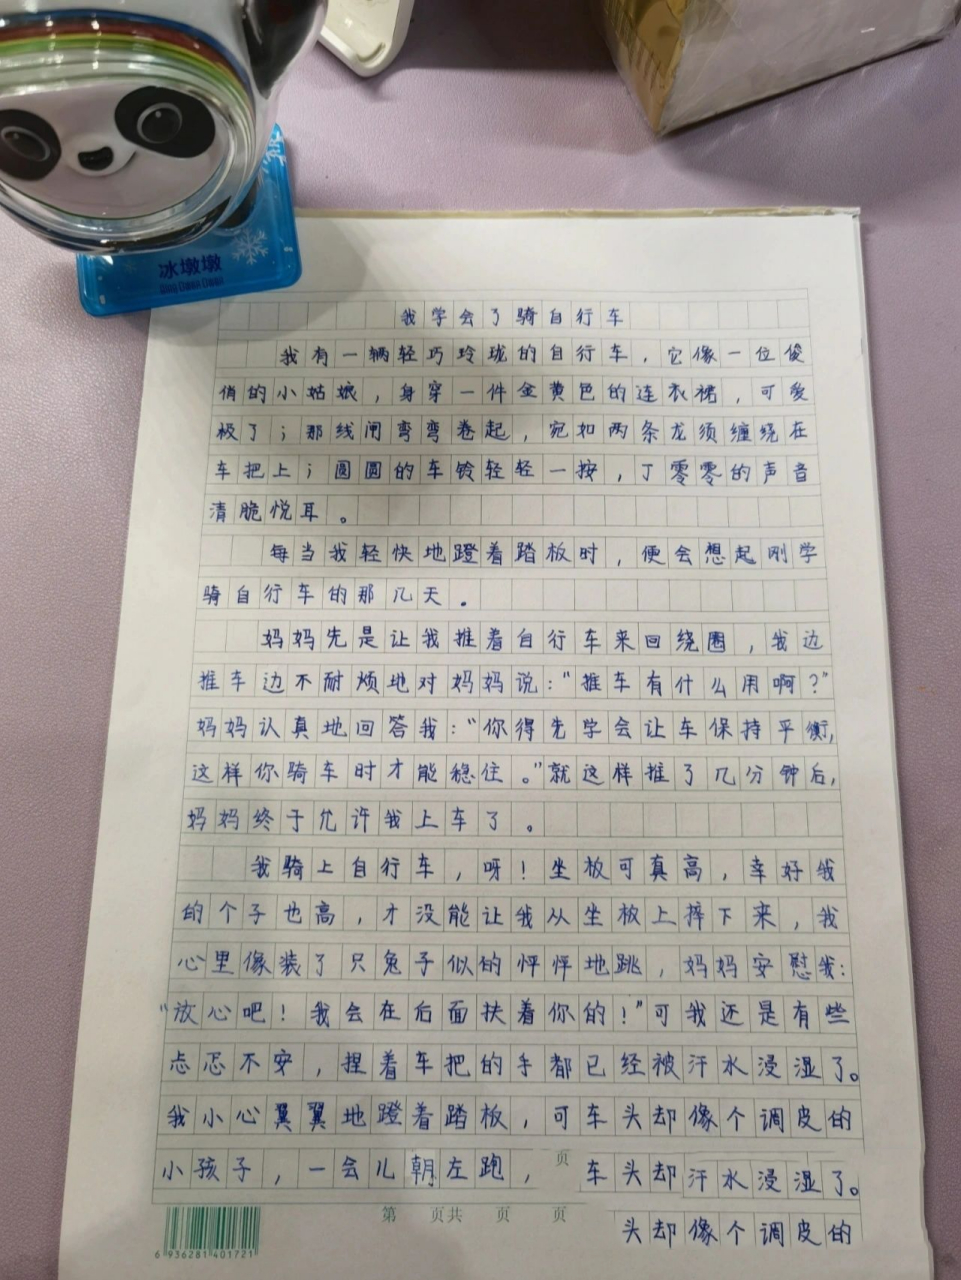 冰墩墩
我学会了骑自行车
我有一辆轻巧玲珑的自行车，它像一位俊
俏的小姑娘，身穿一件金黄色的连衣裙，可爱
极了；那线闸弯弯卷起，宛如两条龙须缠绕在
车把上；圆圆的车铃轻轻一按，丁零零的声音
清脆悦耳。
每当我轻快地蹬着踏板时，便会想起刚学
骑自行车的那几天。
妈妈先是让我推着自行车来回绕圈，我边
推车边不耐烦地对妈妈说：“推车有什么用啊？”
妈妈认真地回答我：“你得先学会让车保持平衡，
这样你骑车时才能稳住。”就这样推了几分钟后，
妈妈终于允许我上车了。
我骑上自行车，呀！坐板可真高，幸好我
的个子也高，才没能让我从坐板上摔下来，我
心里像装了只兔子似的怦怦地跳，妈妈安慰我：
“放心吧！我会在后面扶着你的！”可我还是有些
忐忑不安，捏着车把的手都已经被汗水浸湿了。
我小心翼翼地蹬着踏板，可车头却像个调皮的
小孩子，一会儿朝左跑，页 车头却汗水浸湿了。
第 页共 页 页
头却像个调皮的
6 936281 401721